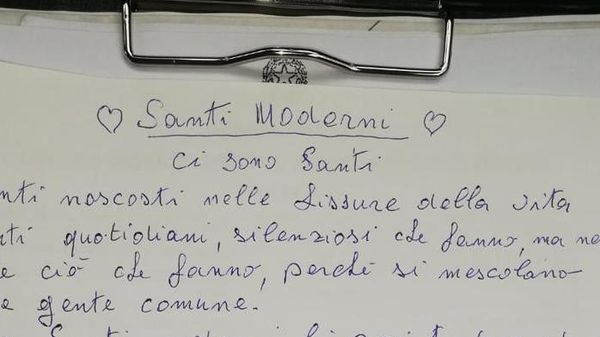 ♡ Santi Moderni ♡
Ci sono Santi
nti nascosti nelle fissure della vita
ti quotidiani, silenziosi che fanno, ma no
e ciò che fanno, perché si mescolano
e gente comune.